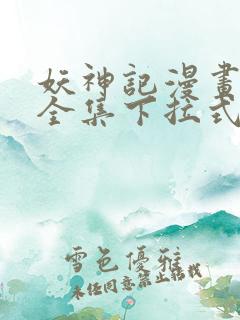 妖神記漫畫
全集下拉式
雪色優雅
未经同意禁止转载